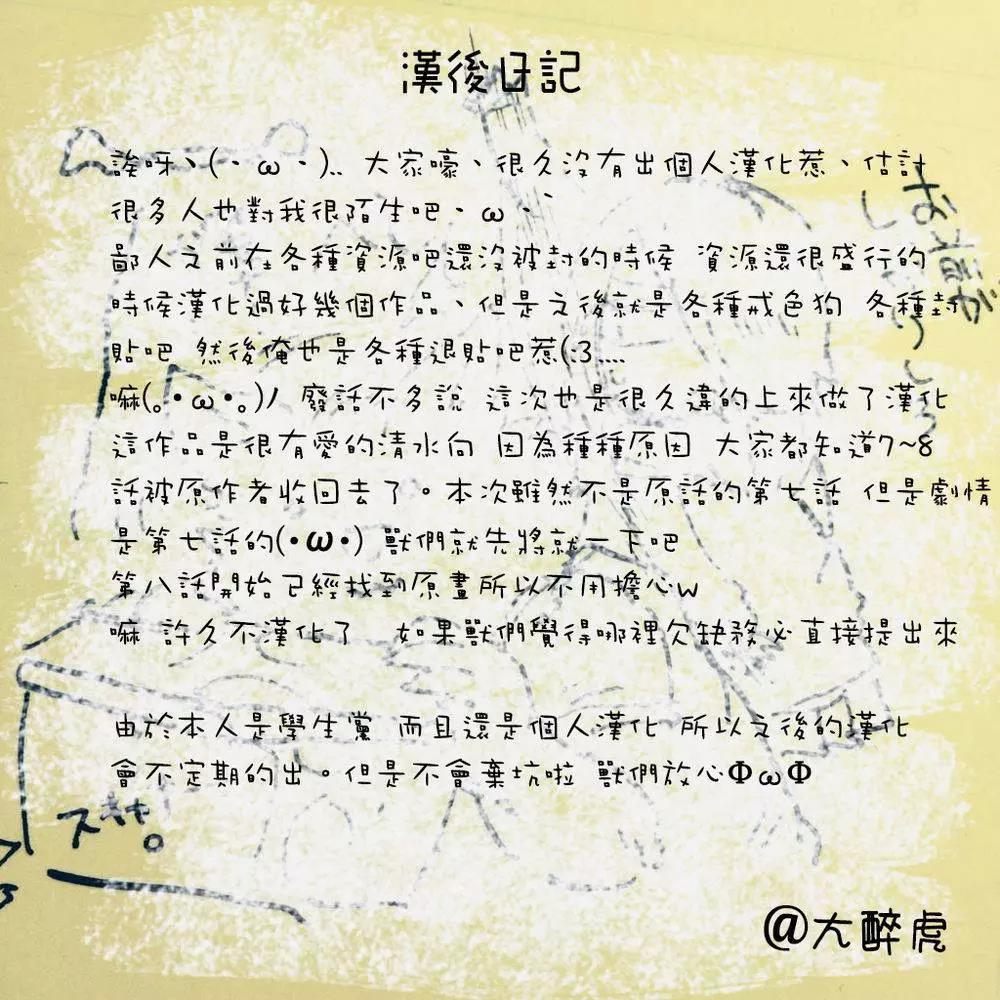 漢後日記
誒呀、(、ω、).. 大家嚎、很久沒有出個人漢化惹、估計
很多人也對我很陌生吧、ω、
鄙人之前在各種資源吧還沒被封的時候 資源還很盛行的
時候漢化過好幾個作品、但是之後就是各種戒色狗 各種封
貼吧 然後俺也是各種退貼吧惹(:3....
嘛(。•ω•。)ﾉ 廢話不多說 這次也是很久違的上來做了漢化
這作品是很有愛的清水向 因為種種原因 大家都知道7~8
話被原作者收回去了。本次雖然不是原話的第七話 但是劇情
是第七話的(•ω•) 獸們就先將就一下吧
第八話開始已經找到原畫所以不用擔心w
嘛 許久不漢化了 如果獸們覺得哪裡欠缺務必直接提出來
由於本人是學生黨 而且還是個人漢化 所以之後的漢化
會不定期的出。但是不會棄坑啦 獸們放心ΦωΦ
@大醉虎